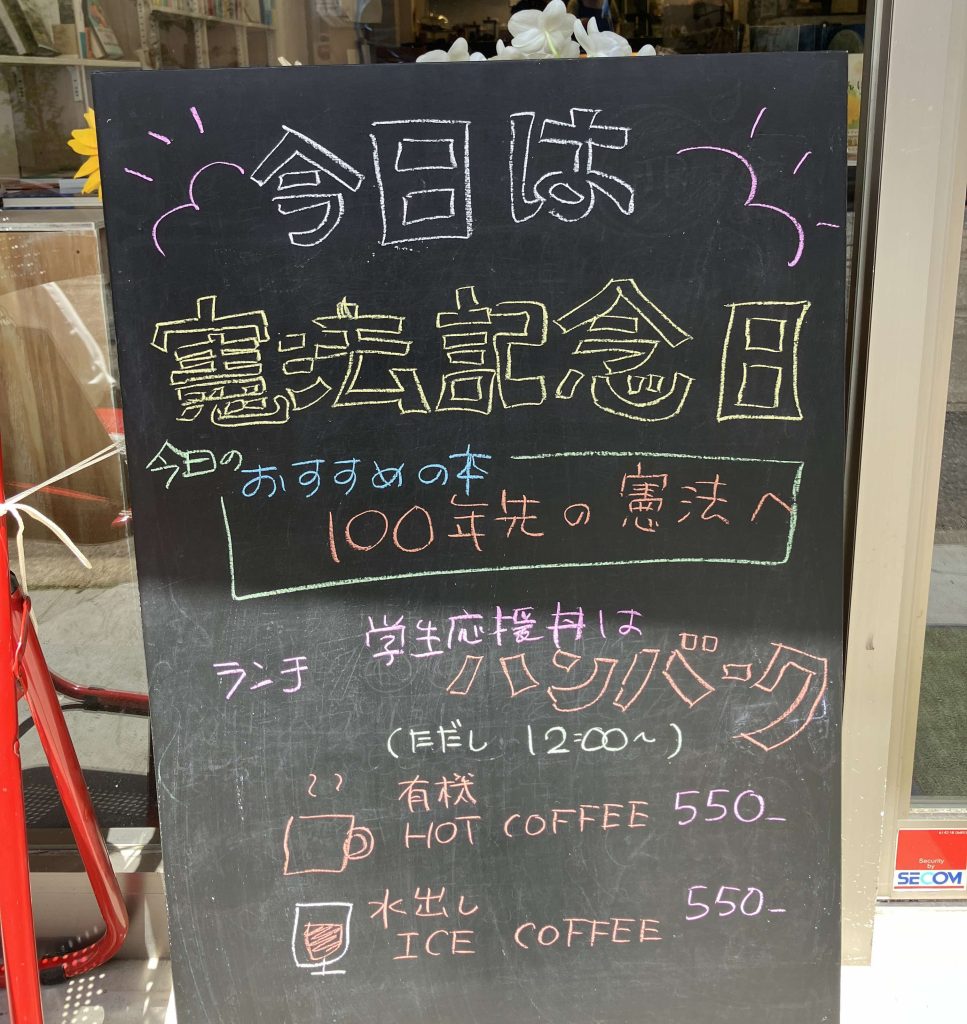 今日は
憲法記念日
今日の
おすすめの本
100年先の憲法へ
学生応援丼は
ランチ ハンバーク
(ただし 12:00〜)
有機
HOT COFFEE 550-
水出し
ICE COFFEE 550-
Security
by
SECOM